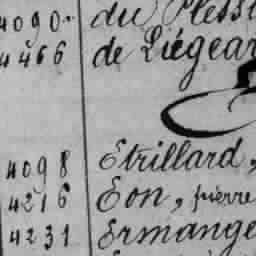 4090 du Pless
4466 de Liégear
4098 Etrillard,
4216 Eon, pierre
4231 Ermange